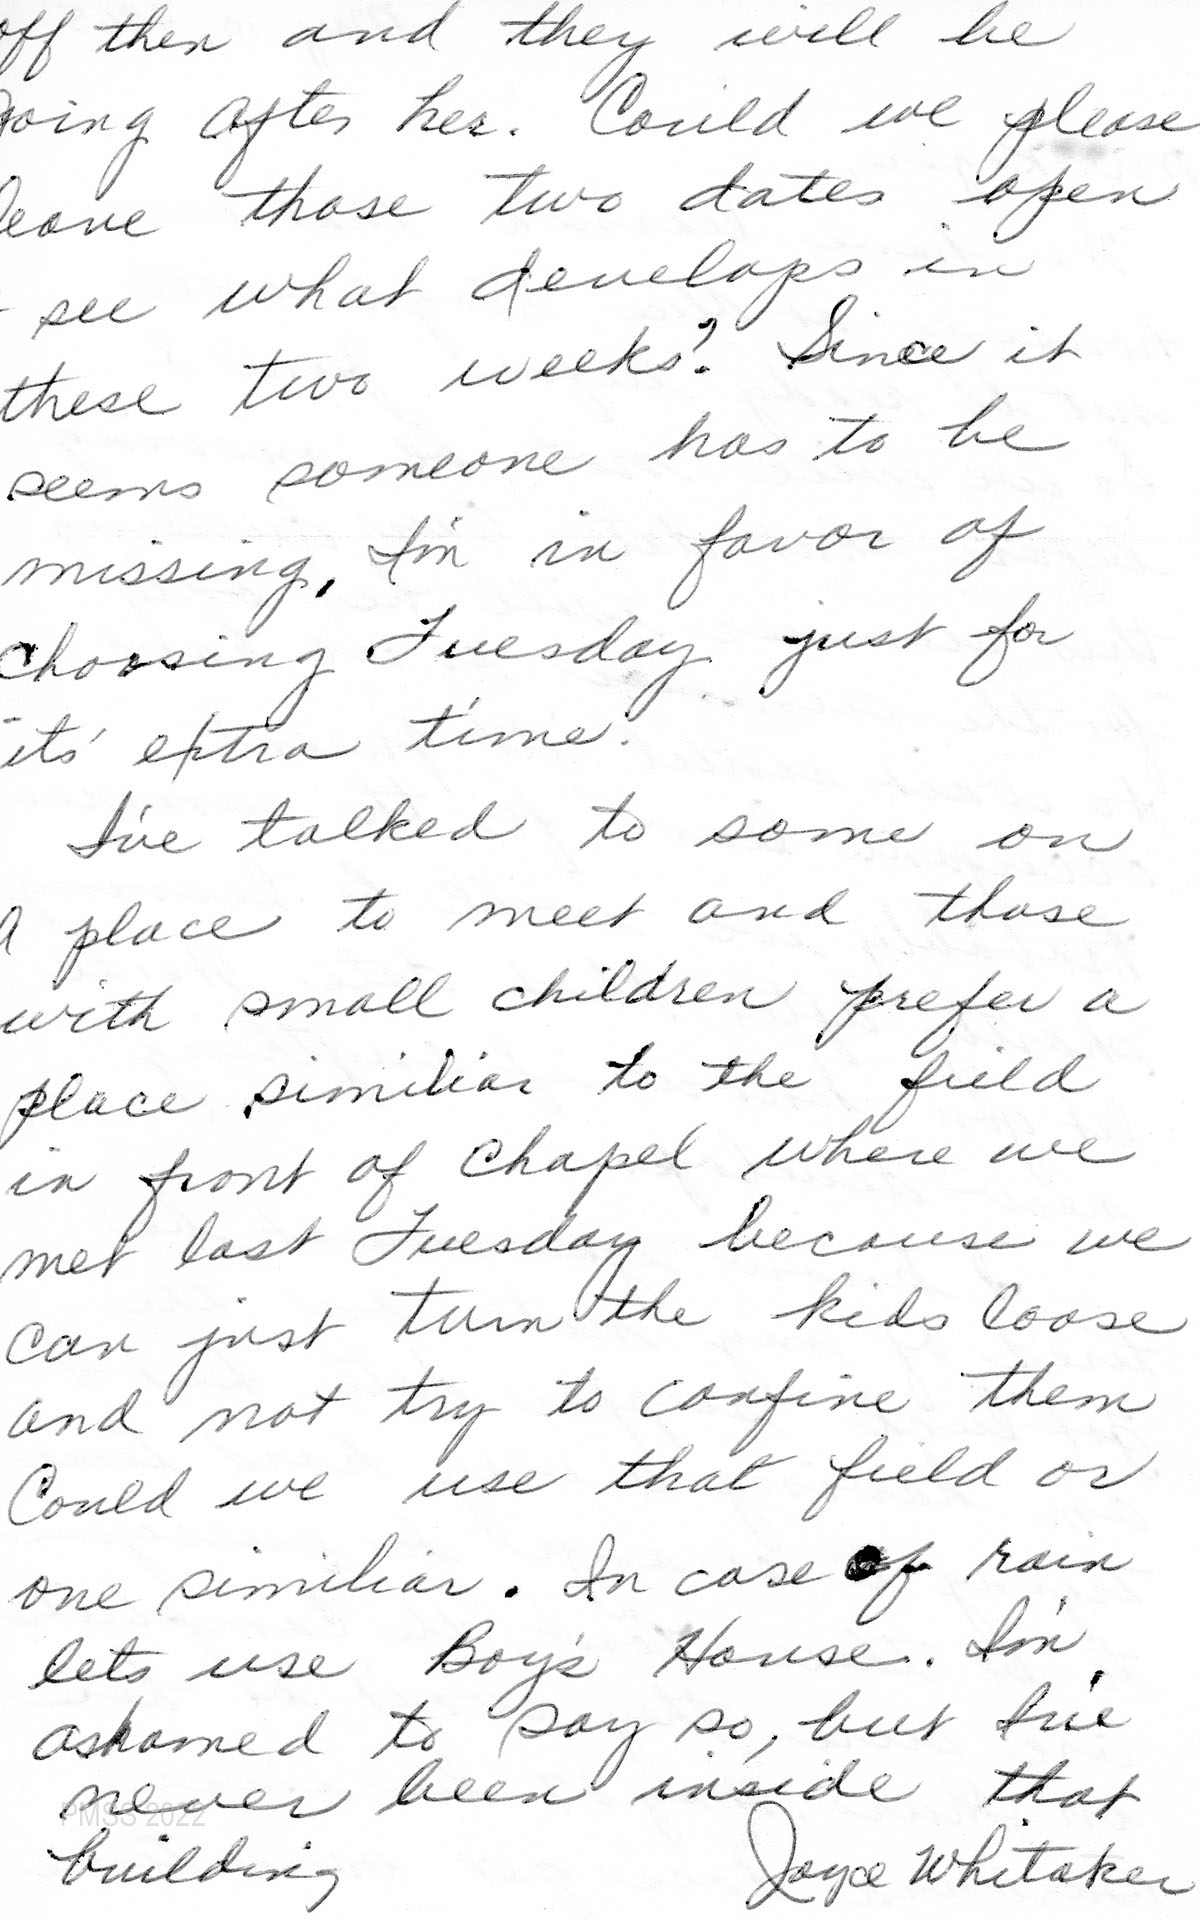 off then and they will be
going after her. Could we please
leave those two dates open
- see what develops in
these two weeks? Since it
seems someone has to be
missing, I'm in favor of
choosing Tuesday just for
its' extra time.
I've talked to some on
a place to meet and those
with small children prefer a
place similiar to the field
in front of Chapel where we
met last Tuesday because we
can just turn the kids loose
and not try to confine them
Could we use that field or
one similiar. In case of rain
lets use Boy's House. I'm
ashamed to say so, but I've
never been inside that
PMSS 2022
building
Joyce Whitaker